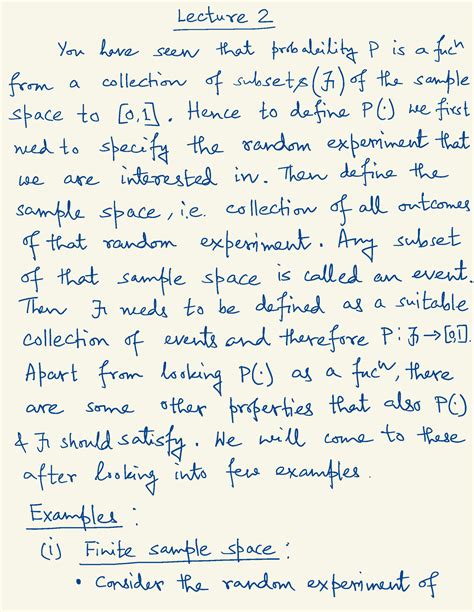 Lecture 2
You have seen that probability P is a fucⁿ
from a collection of subsets (ℱ) of the sample
space to [0,1]. Hence to define P(·) we first
need to specify the random experiment that
we are interested in. Then define the
sample space, i.e. collection of all outcomes
of that random experiment. Any subset
of that sample space is called an event.
Then ℱ needs to be defined as a suitable
collection of events and therefore P: ℱ → [0,1].
Apart from looking P(·) as a fucⁿ, there
are some other properties that also P(·)
& ℱ should satisfy. We will come to these
after looking into few examples.
Examples :
(i) Finite sample space :
• Consider the random experiment of